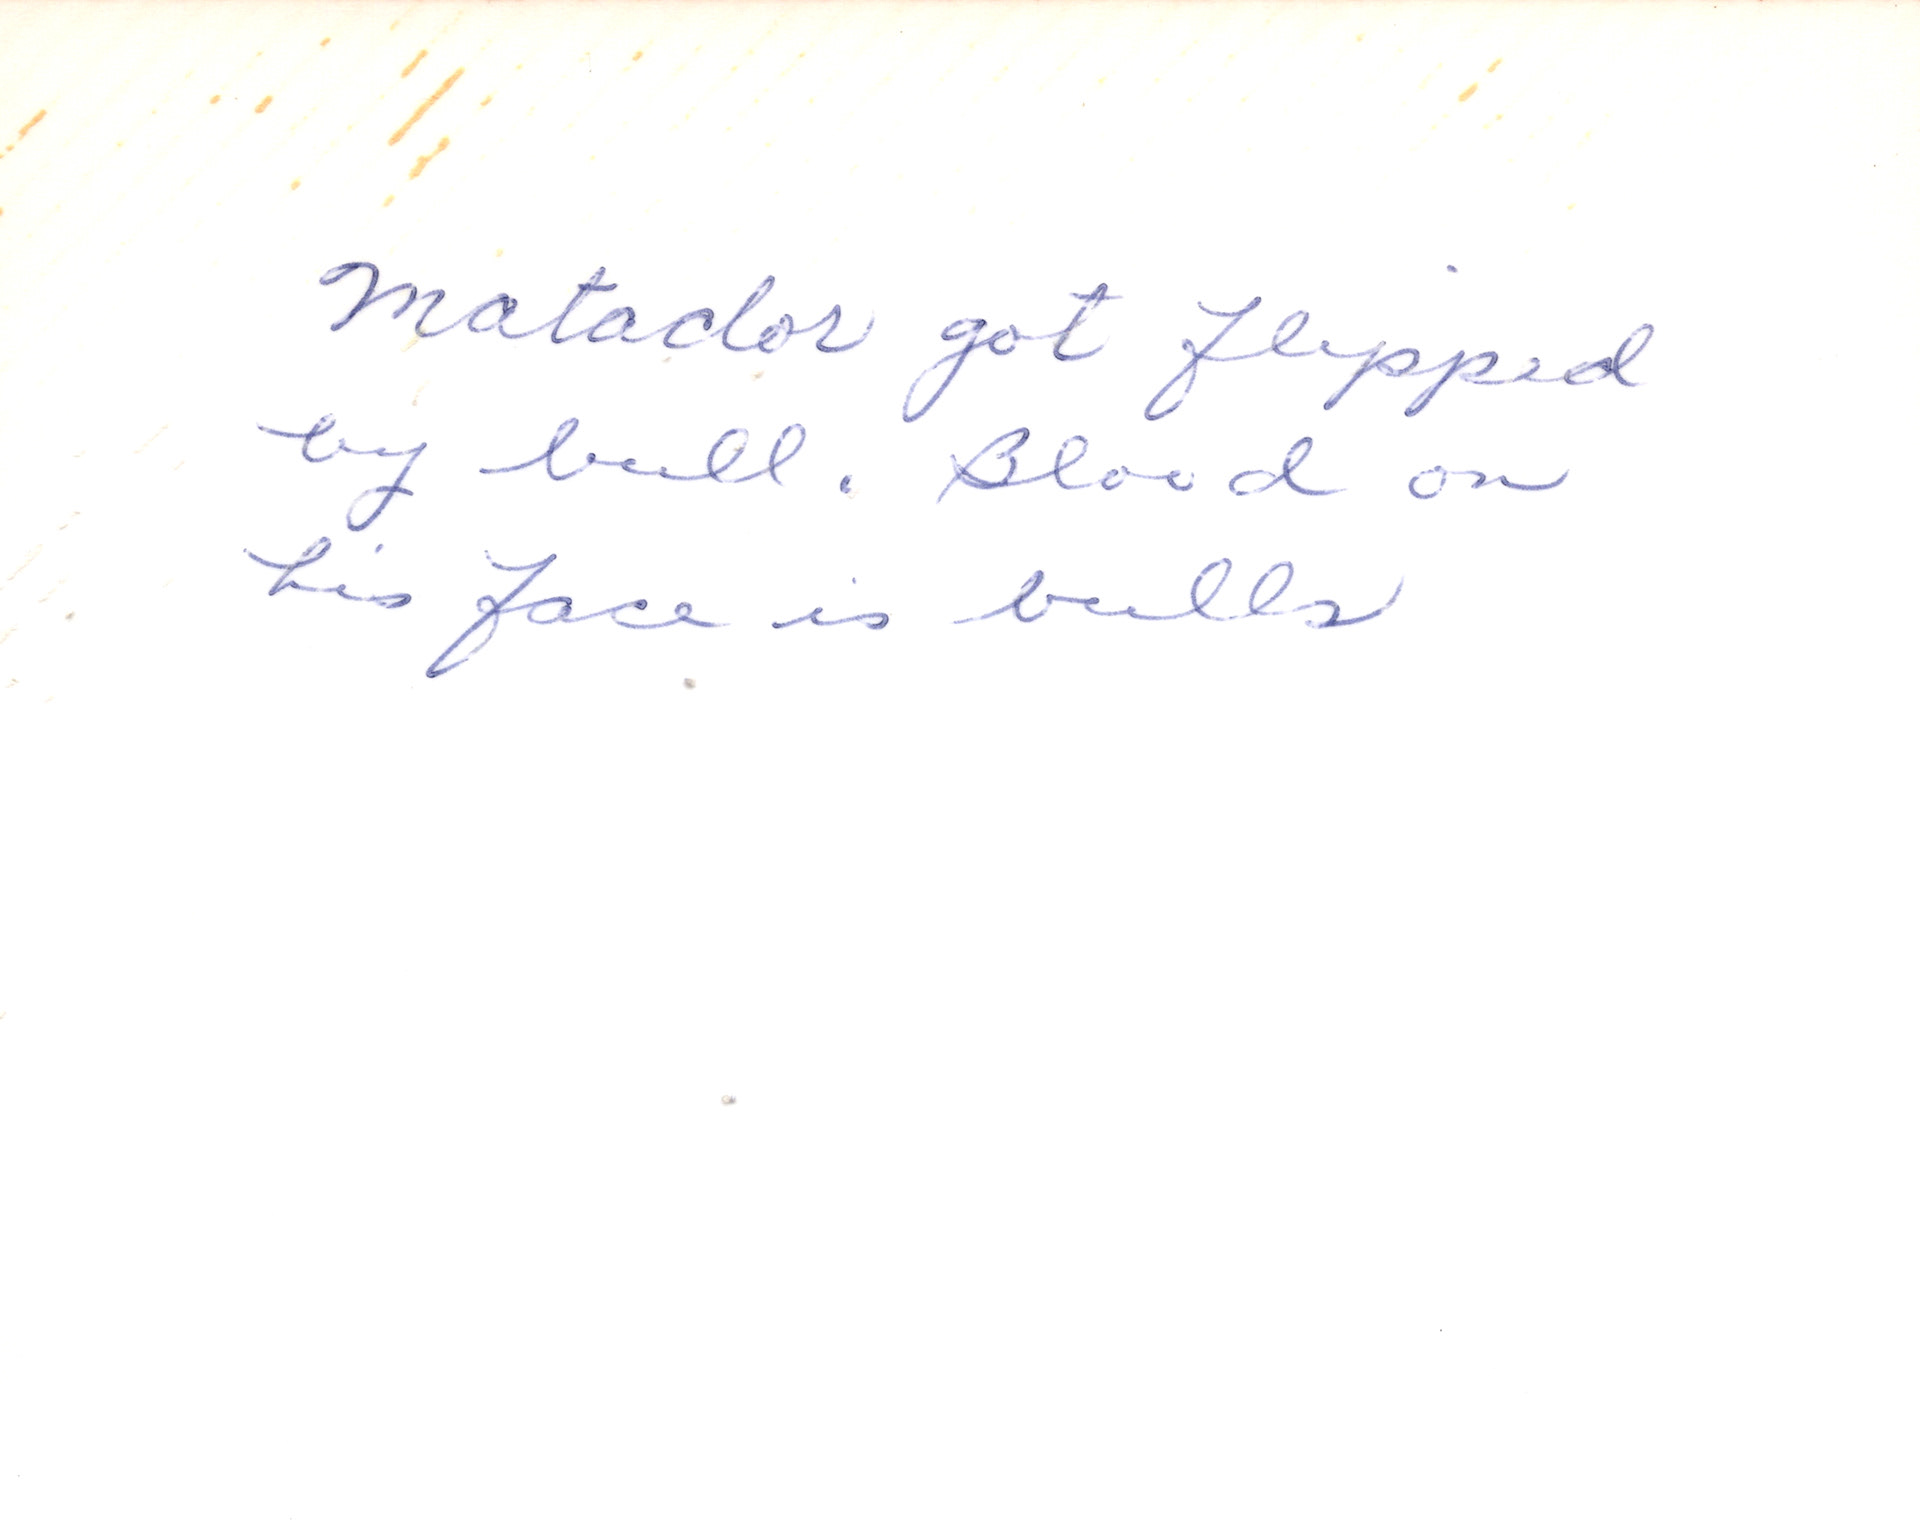 Matador got flipped
by bull. Blood on
his face is bulls